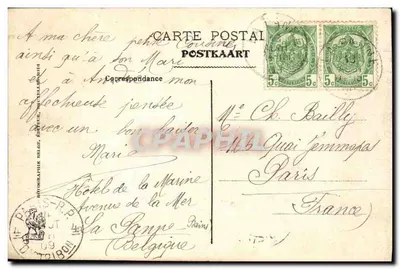 CARTE POSTALE
POSTKAART
Correspondance
A ma chère petite Cousine
ainsi qu'à son Mari
et à André mon
affectueuse pensée
avec un bon baiser
Marie
Hôtel de la Marine
Avenue de la Mer
La Panne (Bains)
(Belgique)
5c 5c 5c 5c
Me Ch. Bailly
Quai Jemmapes
Paris
(France)
PARIS-R.P.
DISTRIBUTION
CPAPHIL